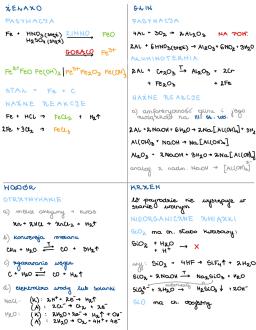 ŻELAZO
PASYWACJA
Fe + HNO₃(stęż) ZIMNO FeO
H₂SO₄(stęż)
GORĄCO Fe³⁺
Fe²⁺ FeO Fe(OH)₂ | Fe³⁺ Fe₂O₃ Fe(OH)₃
STAL = Fe + C
WAŻNE REAKCJE
Fe + HCl → FeCl₂ + H₂↑
2Fe + 3Cl₂ → FeCl₃
GLIN
PASYWACJA
4Al + 3O₂ → 2Al₂O₃ NA POW.
2Al + 6HNO₃(stęż) → Al₂O₃ + 6NO₂ + 3H₂O
ALUMINOTERMIA
2Al + Cr₂O₃ → Al₂O₃ + 2Cr
+ Fe₂O₃ + 2Fe
WAŻNE REAKCJE
a) amfoteryczność glinu i jego
2Al + 2NaOH + 6H₂O → 2Na[Al(OH)₄] + 3H₂
Al(OH)₃ + NaOH → Na[Al(OH)₄]
Al₂O₃ + 2NaOH + 3H₂O → 2Na[Al(OH)₄]
WODÓR
OTRZYMYWANIE
a) metal aktywny + kwas
Zn + 2HCl → ZnCl₂ + H₂↑
b) konwersja metanu
CH₄ + H₂O → CO + 3H₂↑
c) zgazowanie węgla
C + H₂O → CO + H₂↑
d) elektroliza wody lub solanki
NaCl: (K): 2H⁺ + 2e⁻ → H₂↑
(A): 2Cl⁻ → Cl₂ + 2e⁻
H₂O: (K): 2H₂O + 2e⁻ → H₂↑ + OH⁻
(A): 2H₂O → O₂ + 4H⁺ + 4e⁻
KRZEM
W przyrodzie nie występuje w
stanie wolnym
NIEORGANICZNE ZWIĄZKI
SiO₂ ma ch. słabo kwasowy:
SiO₂ + H₂O → X
H⁺
SiO₂ + 4HF → SiF₄↑ + 2H₂O
SiO₂ + 2NaOH → Na₂SiO₃ + H₂O